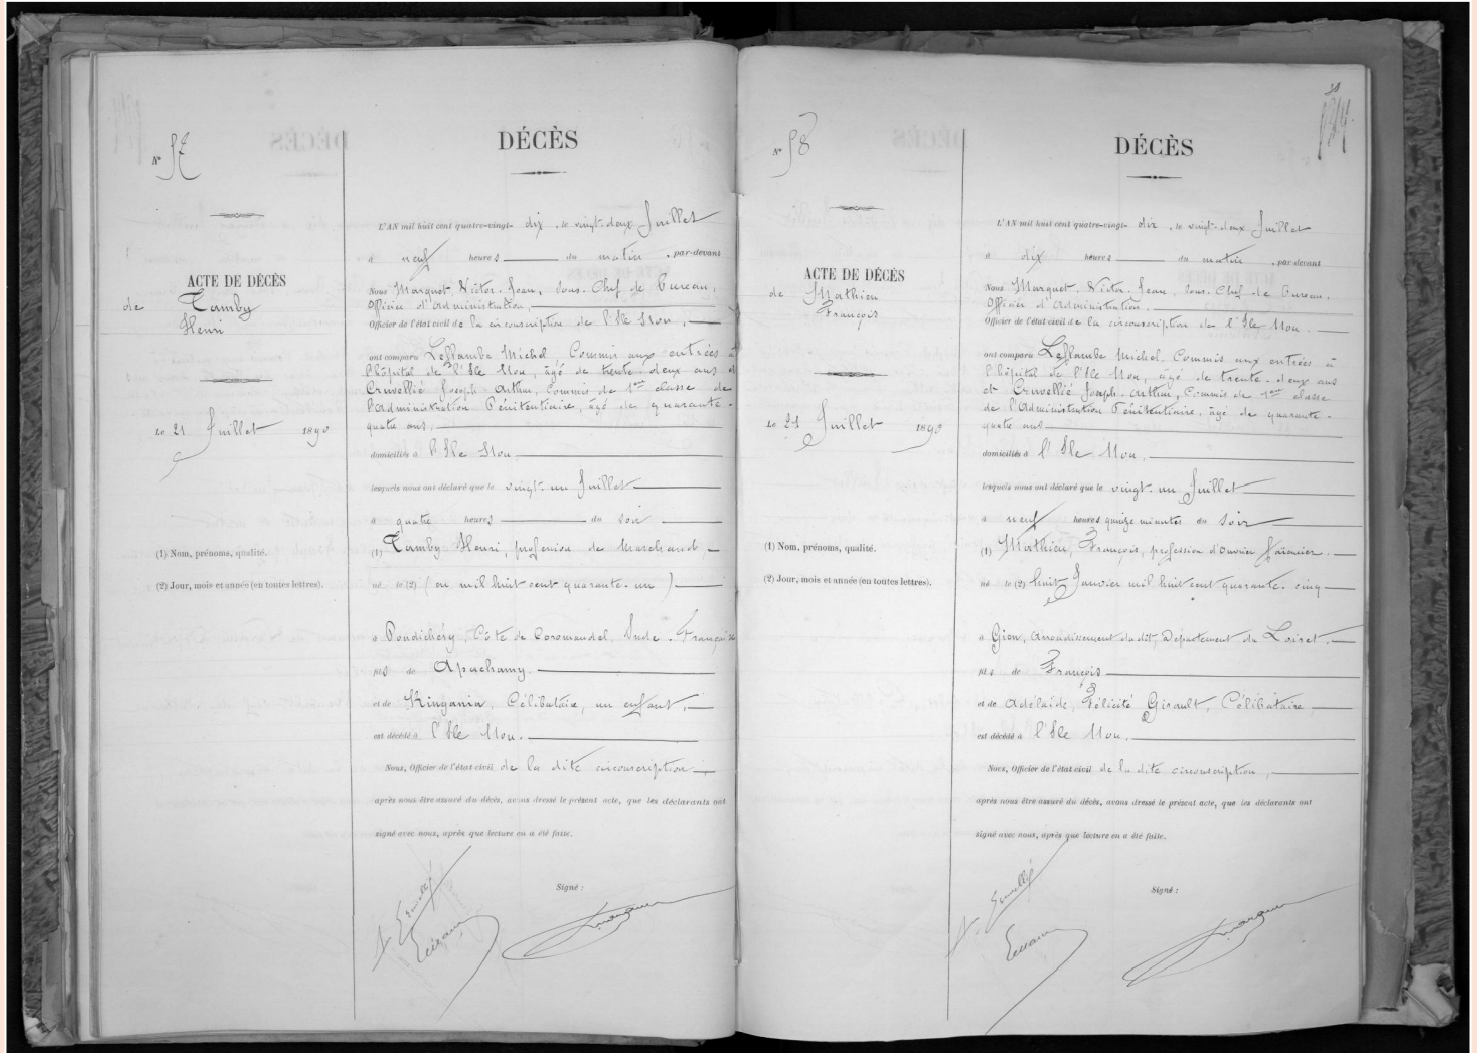 N° 57
ACTE DE DÉCÈS
de Tamby
Henri
Le 21 Juillet 1890
(1) Nom, prénoms, qualité.
(2) Jour, mois et année (en toutes lettres).
DÉCÈS
L'AN mil huit cent quatre-vingt- dix, le vingt-deux Juillet
à neuf heures du matin, par-devant
Nous Marquet, Victor-Jean, Sous-Chef de bureau,
Officier d'Administration,
Officier de l'état civil de la circonscription de l'Ile Nou,
ont comparu Leflambe Michel, Commis aux entrées à
l'hôpital de l'Ile Nou, âgé de trente-deux ans et
Cruvellié Joseph-Arthur, Commis de 1ère classe de
l'Administration Pénitentiaire, âgé de quarante-
quatre ans,
domiciliés à l'Ile Nou.
lesquels nous ont déclaré que le vingt-un Juillet
à quatre heures du soir
(1) Tamby Henri, profession de Marchand,
né le (2) (en mil huit cent quarante-un)
à Pondichéry, Côte de Coromandel, Inde-Française
fils de Apachamy.
et de Ringania, Célibataire, un enfant,
est décédé à l'Ile Nou.
Nous, Officier de l'état civil de la dite circonscription
après nous être assuré du décès, avons dressé le présent acte, que les déclarants ont
signé avec nous, après que lecture en a été faite.
Signé :
A. Cruvellié
Marquet
N° 58
ACTE DE DÉCÈS
de Mathieu
François
Le 21 Juillet 1890
(1) Nom, prénoms, qualité.
(2) Jour, mois et année (en toutes lettres).
DÉCÈS
L'AN mil huit cent quatre-vingt- dix, le vingt-deux Juillet
à dix heures du matin, par-devant
Nous Marquet, Victor-Jean, Sous-Chef de bureau,
Officier d'Administration,
Officier de l'état civil de la circonscription de l'Ile Nou.
ont comparu Leflambe Michel, Commis aux entrées à
l'hôpital de l'Ile Nou, âgé de trente-deux ans
et Cruvellié Joseph-Arthur, Commis de 1ère classe
de l'Administration Pénitentiaire, âgé de quarante-
quatre ans
domiciliés à l'Ile Nou.
lesquels nous ont déclaré que le vingt-un Juillet
à neuf heures quinze minutes du soir
(1) Mathieu, François, profession d'Ouvrier faïencier.
né le (2) huit Janvier mil huit cent quarante-cinq
à Gien, Arrondissement du dit, Département du Loiret.
fils de François
et de Adélaïde, Félicité Girault, Célibataire,
est décédé à l'Ile Nou.
Nous, Officier de l'état civil de la dite circonscription,
après nous être assuré du décès, avons dressé le présent acte, que les déclarants ont
signé avec nous, après que lecture en a été faite.
Signé :
A. Cruvellié
Marquet